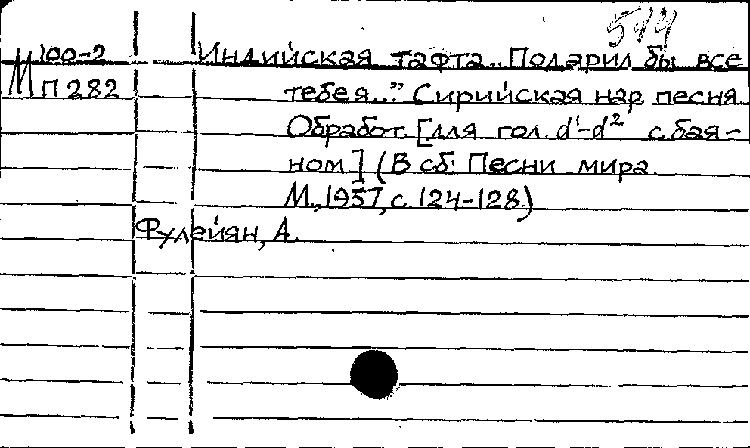 574
М 100-2 Индийская тафта.. Подарил бы все
П 282 тебе я..." Сирийская нар песня.
Обработ. [для гол. d¹-d² с бая-
ном] (В сб: Песни мира.
М., 1957, с. 124-128)
Фулейян, А.